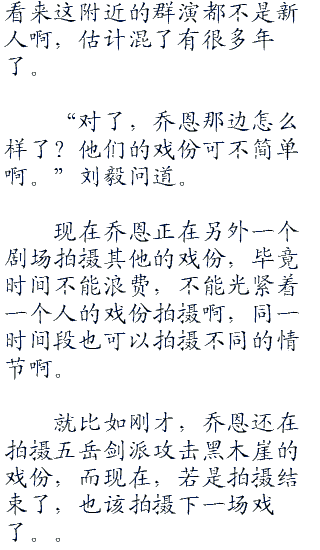 看来这附近的群演都不是新
人啊，估计混了有很多年
了。
“对了，乔恩那边怎么
样了？他们的戏份可不简单
啊。”刘毅问道。
现在乔恩正在另外一个
剧场拍摄其他的戏份，毕竟
时间不能浪费，不能光紧着
一个人的戏份拍摄啊，同一
时间段也可以拍摄不同的情
节啊。
就比如刚才，乔恩还在
拍摄五岳剑派攻击黑木崖的
戏份，而现在，若是拍摄结
束了，也该拍摄下一场戏
了。。